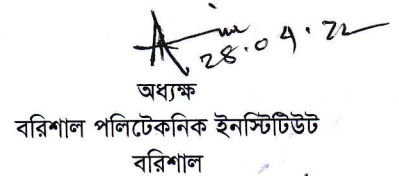 28.04.22
অধ্যক্ষ
বরিশাল পলিটেকনিক ইনস্টিটিউট
বরিশাল